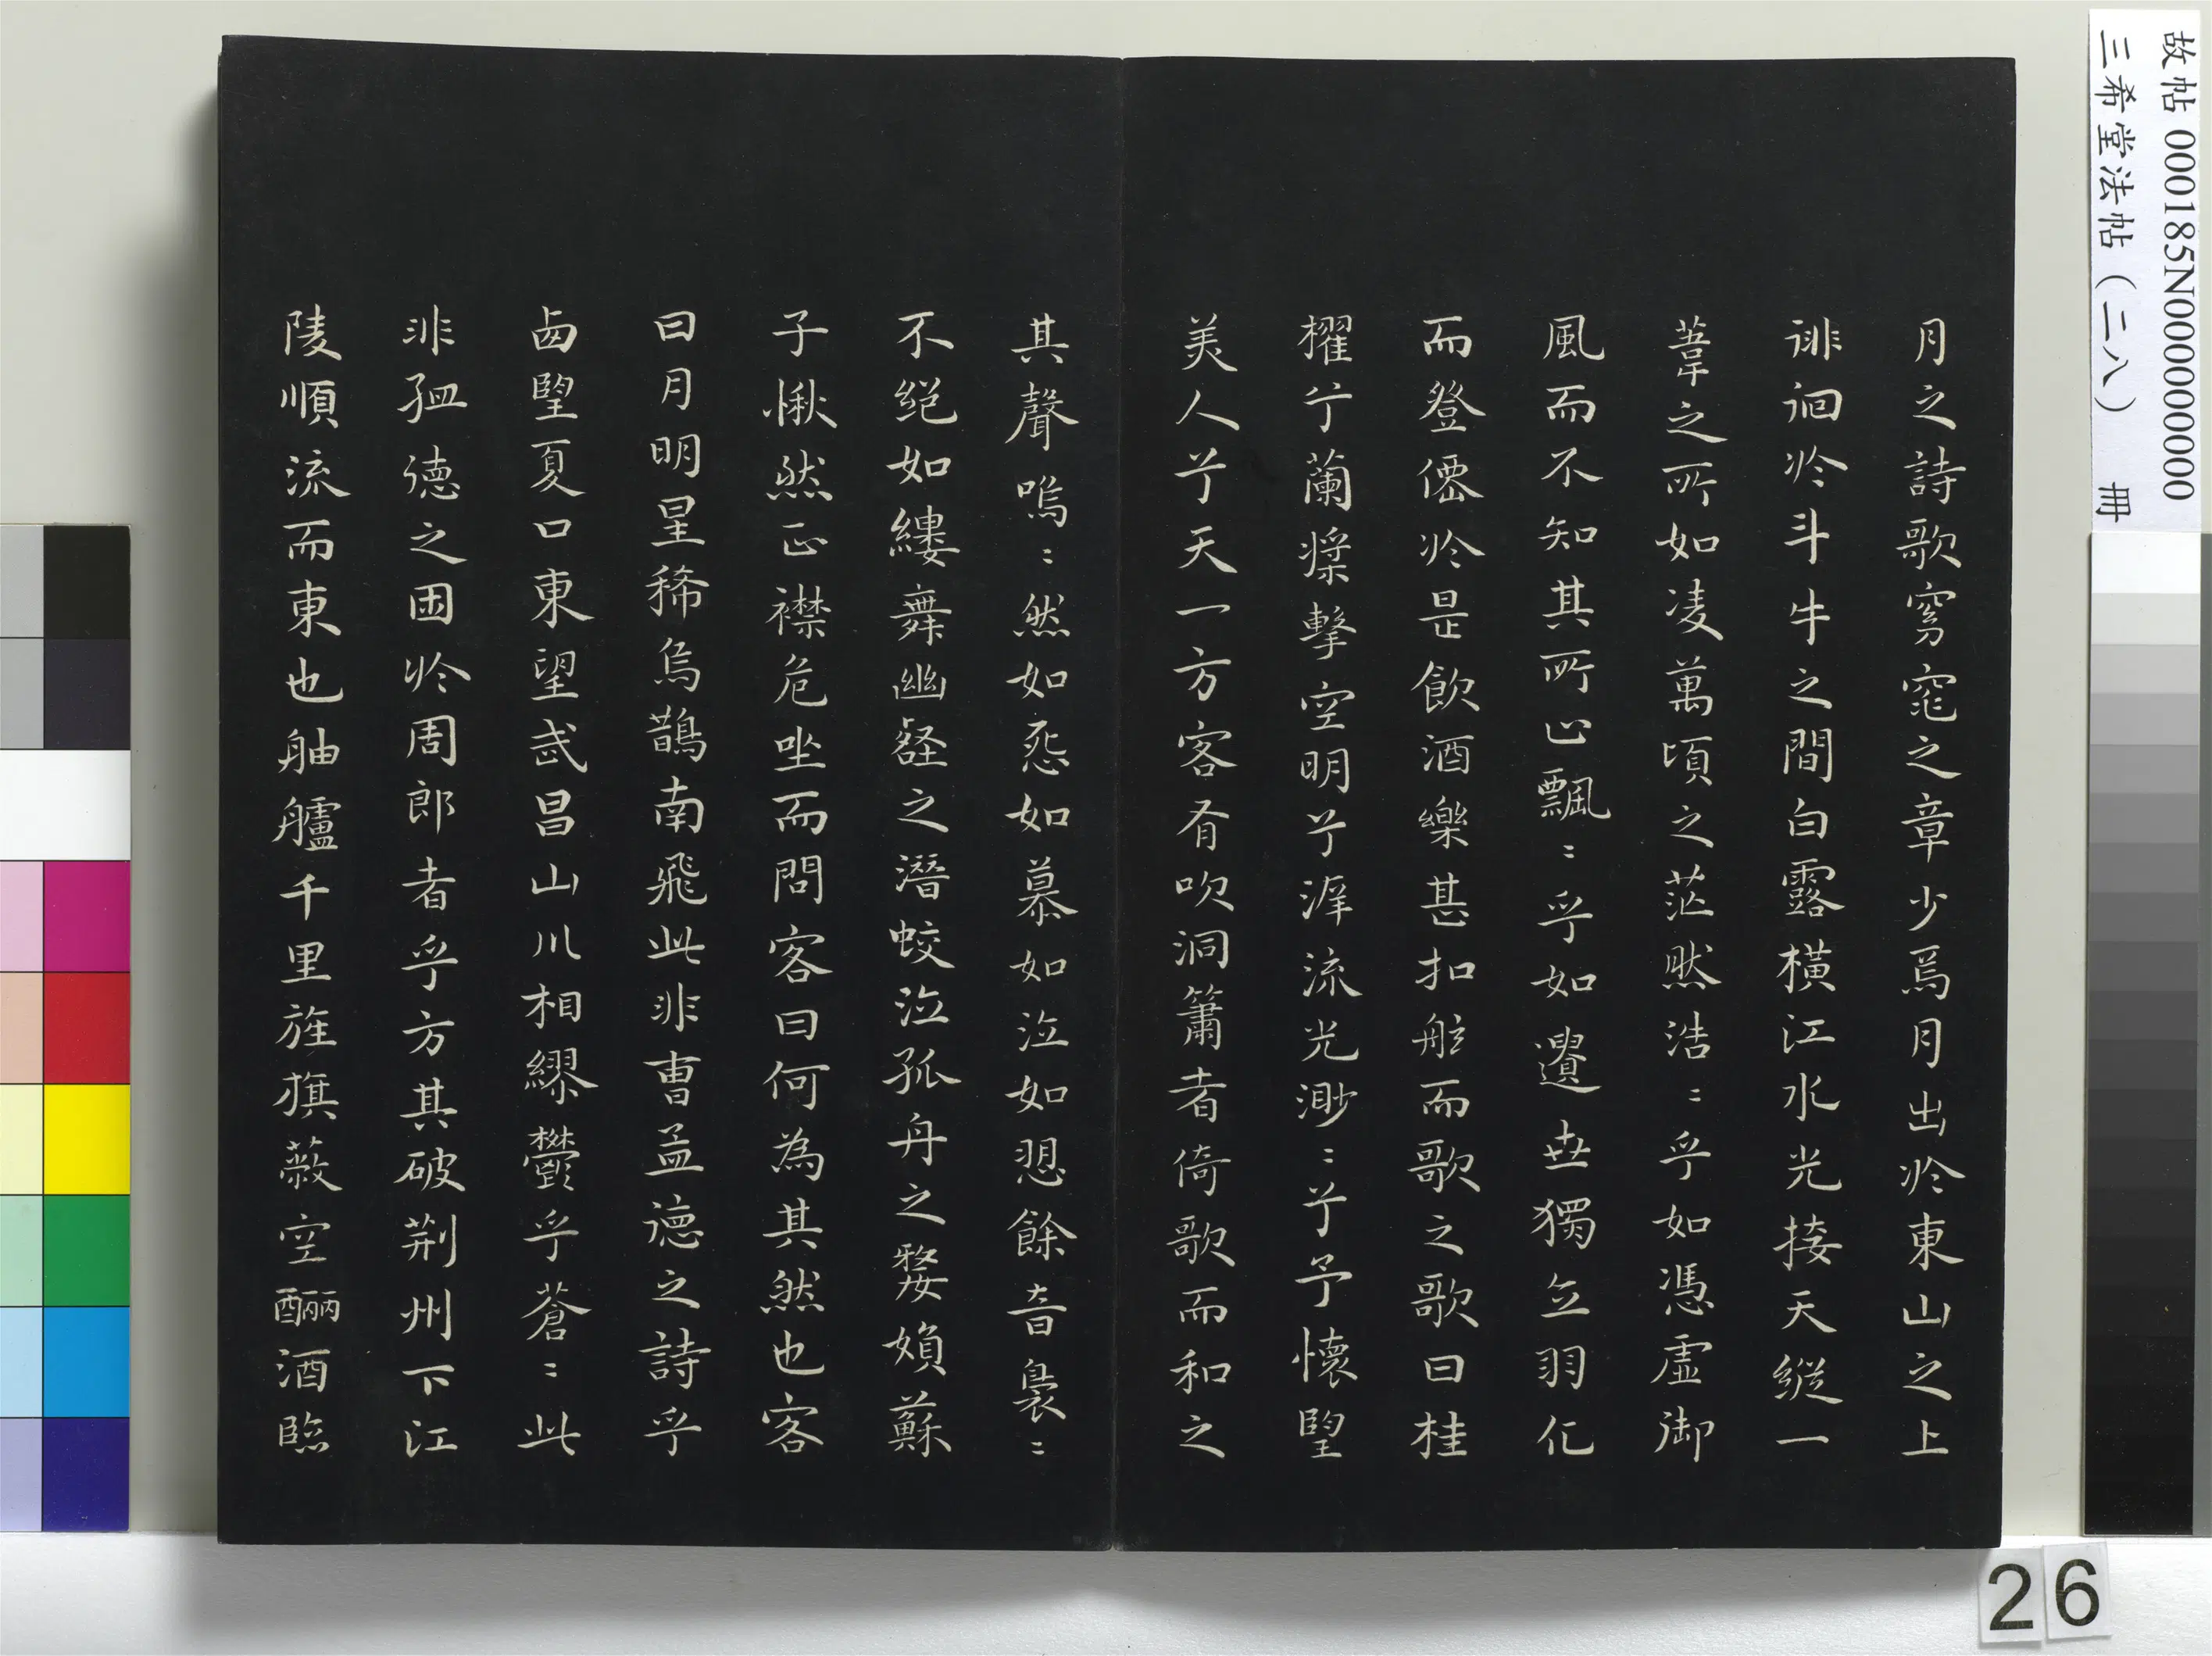 月之詩歌窈窕之章少焉月出於東山之上
徘徊於斗牛之間白露橫江水光接天縱一
葦之所如凌萬頃之茫然浩〻乎如憑虛御
風而不知其所止飄〻乎如遺世獨立羽化
而登僊於是飲酒樂甚扣舷而歌之歌曰桂
櫂兮蘭槳擊空明兮泝流光渺〻兮予懷望
美人兮天一方客有吹洞簫者倚歌而和之
其聲嗚〻然如怨如慕如泣如愬餘音裊〻
不絕如縷舞幽壑之潛蛟泣孤舟之嫠婦蘇
子愀然正襟危坐而問客曰何為其然也客
曰月明星稀烏鵲南飛此非曹孟德之詩乎
西望夏口東望武昌山川相繆鬱乎蒼〻此
非孟德之困於周郎者乎方其破荊州下江
陵順流而東也舳艫千里旌旗蔽空釃酒臨
故帖 000185N000000000
三希堂法帖（二八） 冊
26